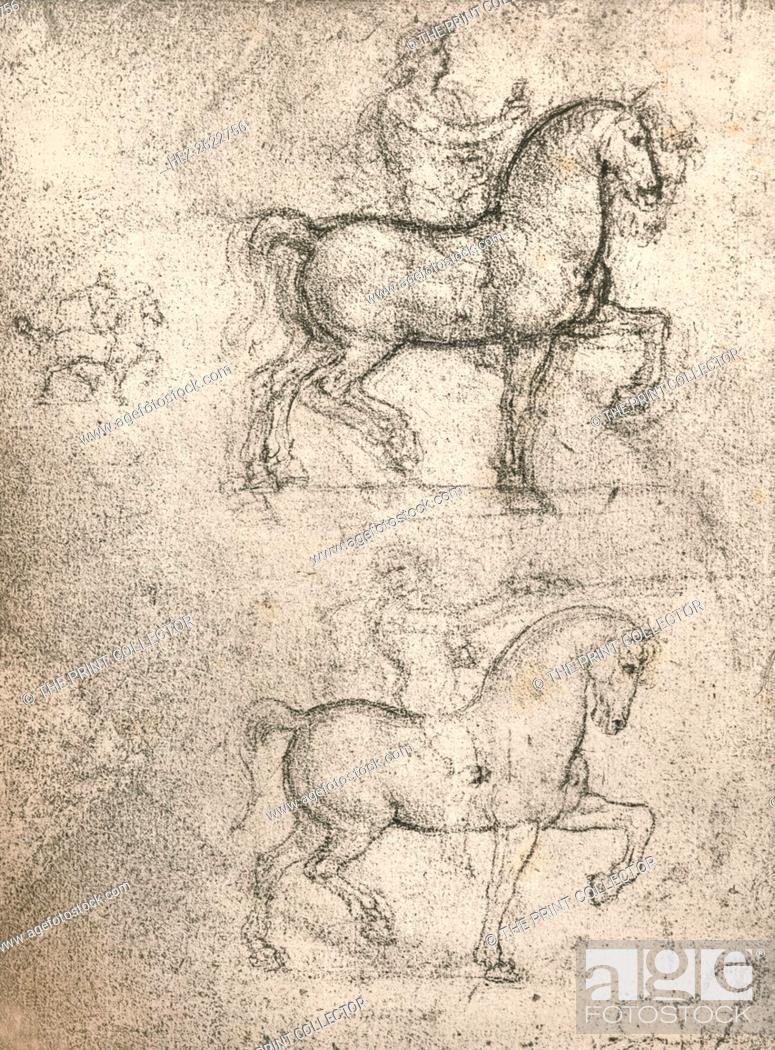 © THE PRINT COLLECTOR
HEZ-2622756
www.agefotostock.com
© THE PRINT COLLECTOR
www.agefotostock.com
www.agefotostock.com
© THE PRINT COLLECTOR
www.agefotostock.com
www.agefotostock.com
© THE PRINT COLLECTOR
© THE PRINT COLLECTOR
www.agefotostock.com
www.agefotostock.com
© THE PRINT COLLECTOR
© THE PRINT COLLECTOR
www.agefotostock.com
www.agefotostock.com
age
FOTOSTOCK